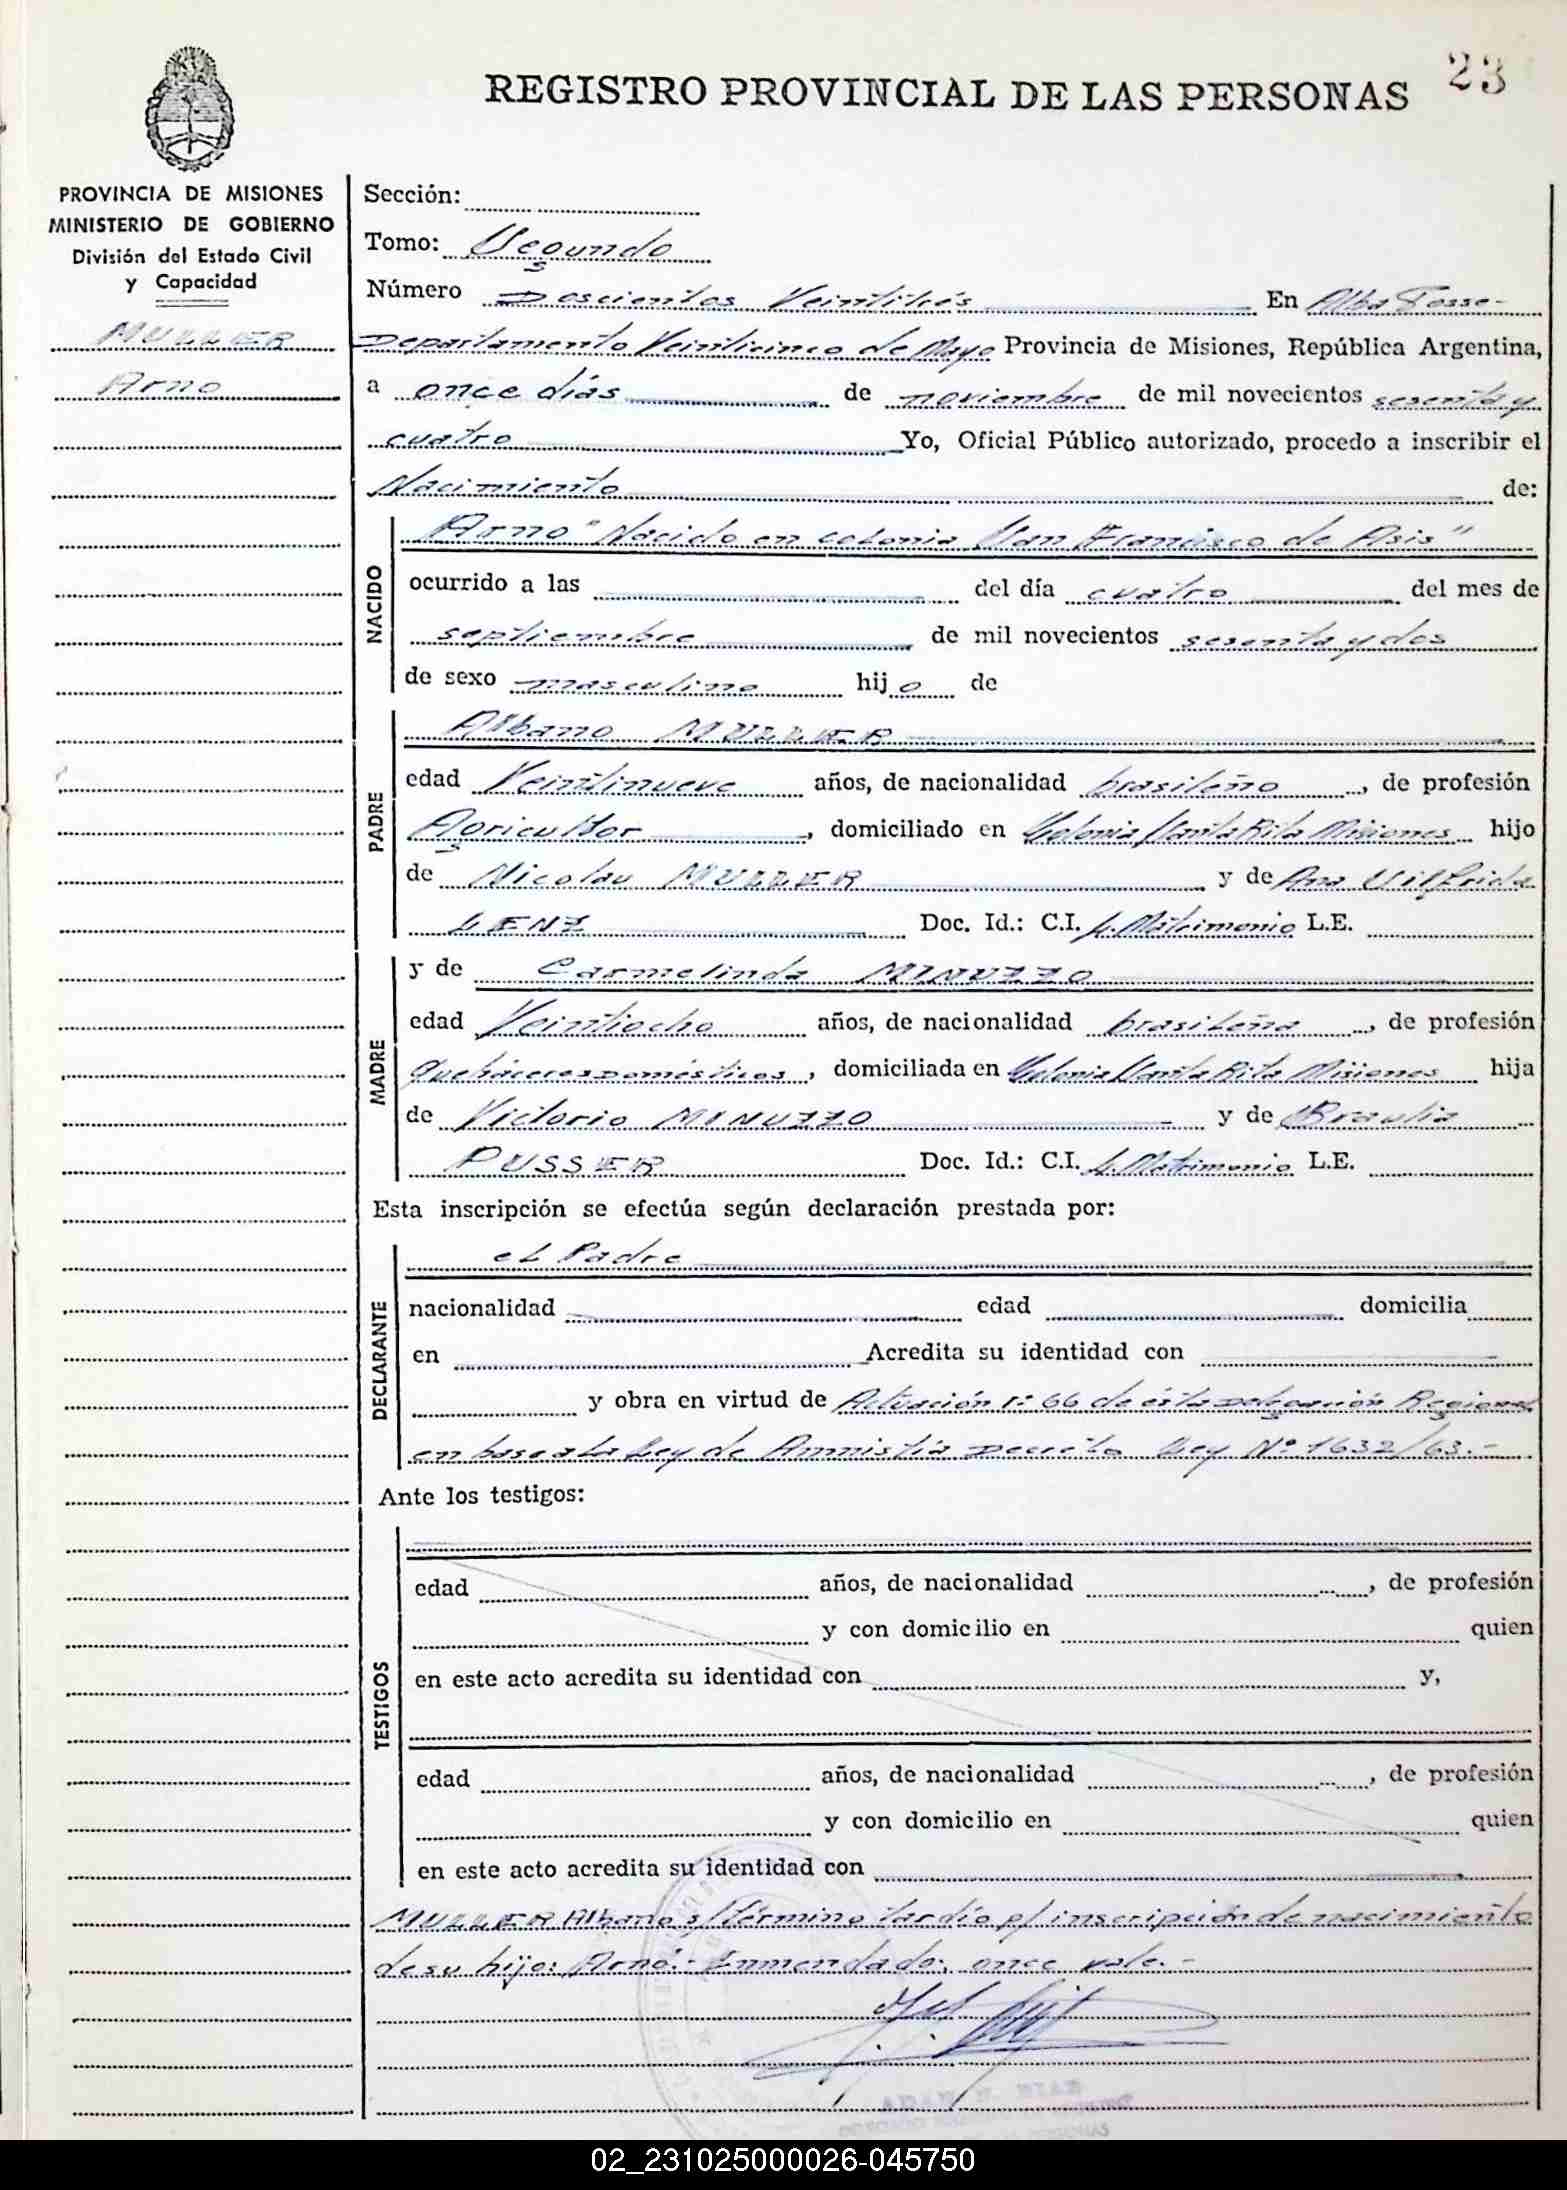 REGISTRO PROVINCIAL DE LAS PERSONAS
23
PROVINCIA DE MISIONES
MINISTERIO DE GOBIERNO
División del Estado Civil
y Capacidad
MULLER
Arno
Sección:
Tomo: Segundo
Número Doscientos Veintitrés En Alba Posse-
Departamento Veinticinco de Mayo Provincia de Misiones, República Argentina,
a once días de noviembre de mil novecientos sesenta y
cuatro Yo, Oficial Público autorizado, procedo a inscribir el
Nacimiento de:
NACIDO
Arno "Nacido en colonia San Francisco de Asis"
ocurrido a las del día cuatro del mes de
septiembre de mil novecientos sesenta y dos
de sexo masculino hijo de
PADRE
Albano MULLER
edad Veintinueve años, de nacionalidad brasileño, de profesión
Agricultor, domiciliado en Colonia Santa Rita Misiones hijo
de Nicolau MULLER y de Ana Vilfrida
LENZ Doc. Id.: C.I. L. Matrimonio L.E.
MADRE
y de Carmelinda MINUZZO
edad Veintiocho años, de nacionalidad brasileña, de profesión
Quehaceres Domésticos, domiciliada en Colonia Santa Rita Misiones hija
de Victorio MINUZZO y de Braulia
PUSSER Doc. Id.: C.I. L. Matrimonio L.E.
Esta inscripción se efectúa según declaración prestada por:
DECLARANTE
el Padre
nacionalidad edad domicilia
en Acredita su identidad con
y obra en virtud de Actuación n: 66 de ésta Delegación Regional
en base a la Ley de Amnistía Decreto Ley Nº 1632/63.-
Ante los testigos:
TESTIGOS
edad años, de nacionalidad , de profesión
y con domicilio en quien
en este acto acredita su identidad con y,
edad años, de nacionalidad , de profesión
y con domicilio en quien
en este acto acredita su identidad con
MULLER Albano s/término tardío p/ inscripción de nacimiento
de su hijo: Arno.- Enmendado: once vale.-
02_231025000026-045750